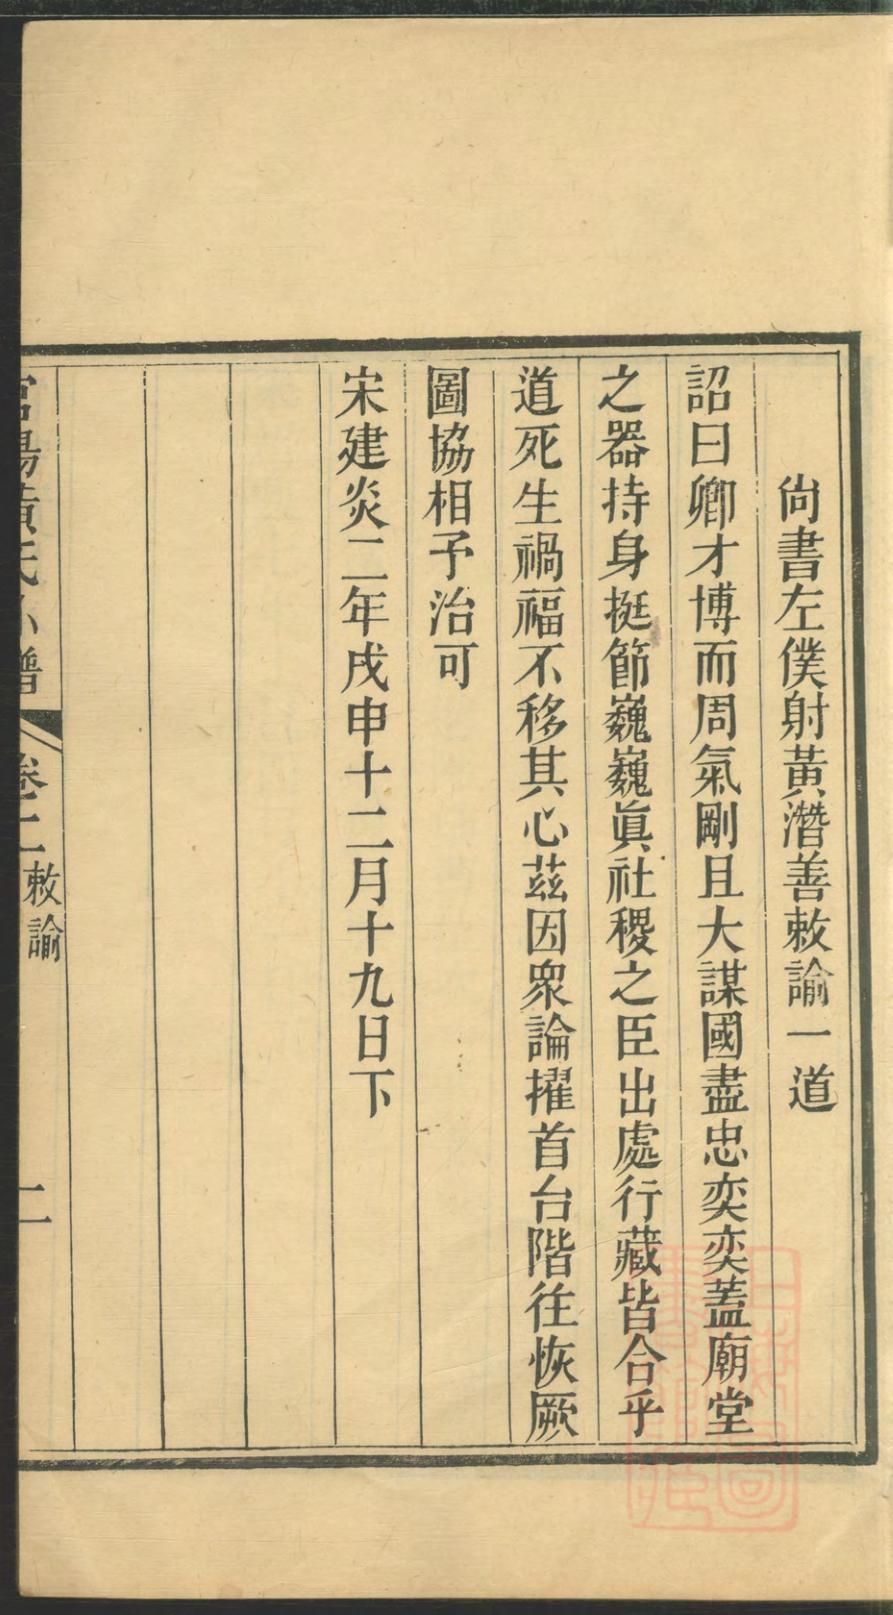 尙書左僕射黃潛善敕諭一道
詔曰卿才博而周氣剛且大謀國盡忠奕奕蓋廟堂
之器持身挺節巍巍眞社稷之臣出處行藏皆合乎
道死生禍福不移其心茲因衆論擢首台階往恢厥
圖協相予治可
宋建炎二年戊申十二月十九日下
陽黃氏小譜 卷二 敕諭 二